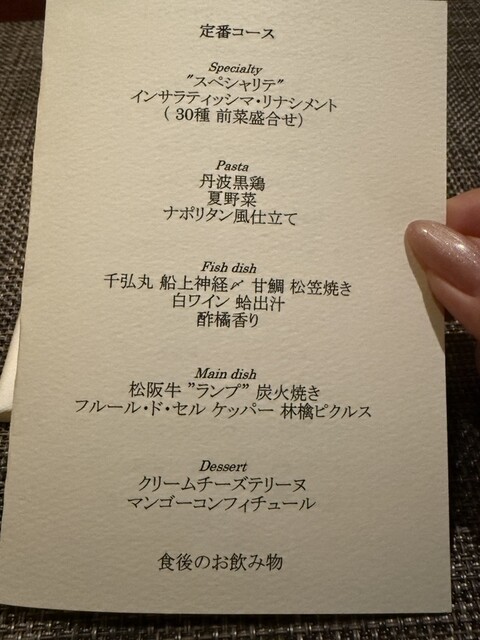 定番コース
Specialty
"スペシャリテ"
インサラティッシマ・リナシメント
( 30種 前菜盛合せ)
Pasta
丹波黒鶏
夏野菜
ナポリタン風仕立て
Fish dish
千弘丸 船上神経〆 甘鯛 松笠焼き
白ワイン 蛤出汁
酢橘香り
Main dish
松阪牛 "ランプ" 炭火焼き
フルール・ド・セル ケッパー 林檎ピクルス
Dessert
クリームチーズテリーヌ
マンゴーコンフィチュール
食後のお飲み物